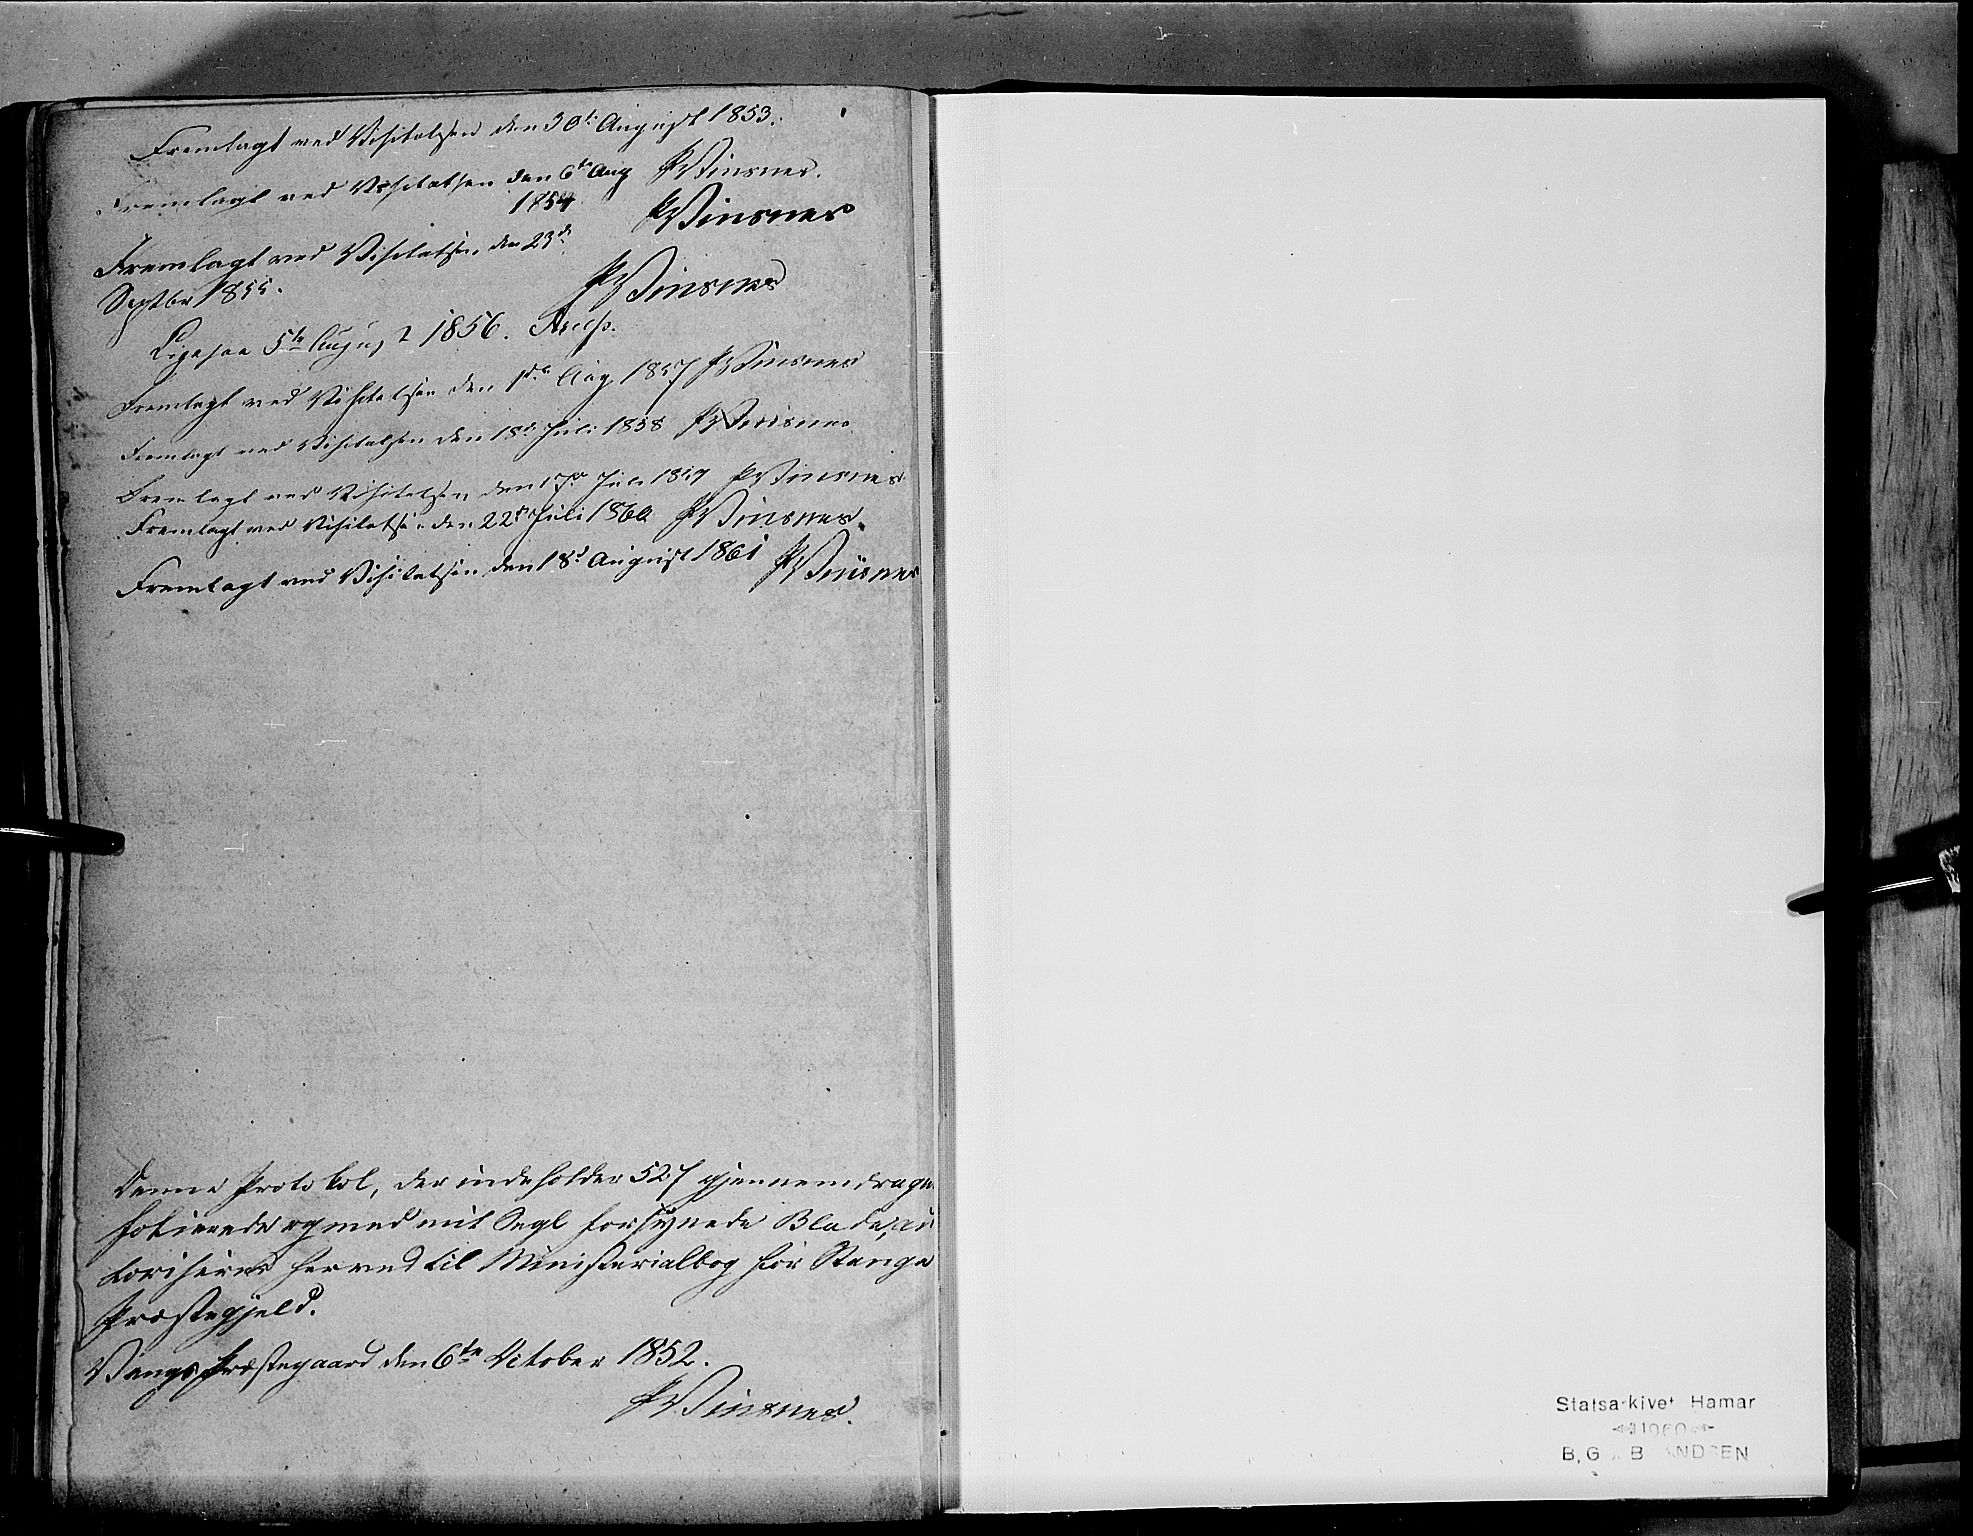 Fremlagt ved Visitatsen den 30te August 1853.
PVinsnes.
Fremlagt ved Visitatsen den 6te Aug
1854
PVinsnes
Fremlagt ved Visitatsen den 23de
Septbr 1855.
PVinsnes
Ligesaa 5te August 1856.
Fremlagt ved Visitatsen den 1ste Aug 1857 PVinsnes
Fremlagt ved Visitatsen den 18de Juli 1858 PVinsnes
Fremlagt ved Visitatsen den 17de Juli 1859 PVinsnes
Fremlagt ved Visitatsen den 22de Juli 1860 PVinsnes.
Fremlagt ved Visitatsen den 18de August 1861 PVinsnes
Denne Protokol, der indeholder 527 gjennemdragne
folierede og med mit Segl forsynede Blade, au
toriseres herved til Ministerialbog for Stange
Præstegjeld.
Vangs Præstegaard den 6te October 1852.
PVinsnes.
Statsarkivet Hamar